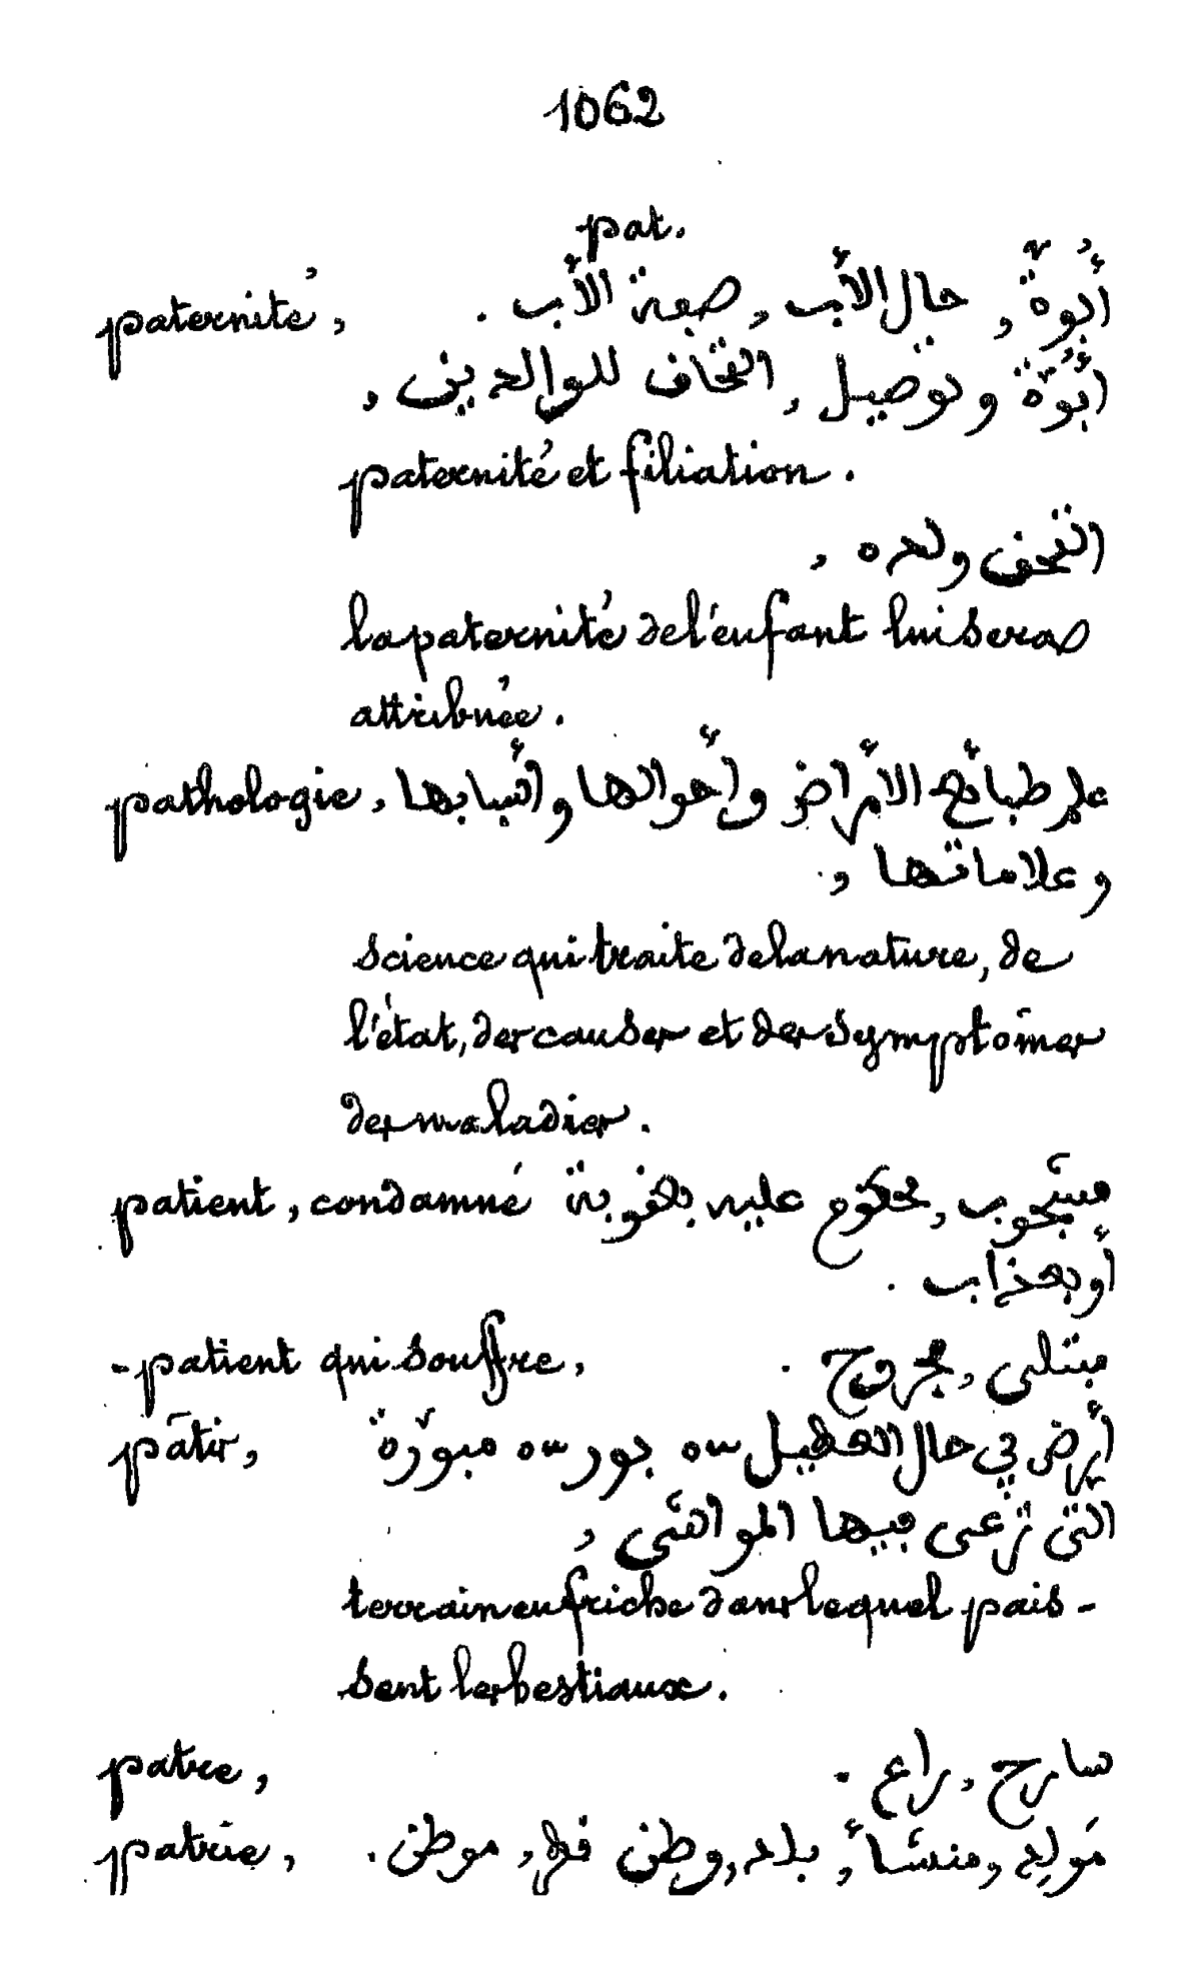 1062
pat.
paternité, أُبُوّةٌ, حال الأب, صفة الأب.
أُبُوّة وتوصيل, التحاف للوالدين,
paternité et filiation.
التحف ولده,
la paternité de l'enfant lui sera
attribuée.
pathologie, علم طبائع الأمراض وأحوالها وأسبابها
وعلاماتها,
science qui traite de la nature, de
l'état, des causes et des symptômes
des maladies.
patient, condamné محكوم عليه بعقوبة
أو بعذاب.
- patient qui souffre, مبتلى, مجروح.
pâtir, أرض في حال العطيل بور مبورة
التي ترعى فيها المواشي,
terrain en friche dans lequel pais-
sent les bestiaux.
patre, سارح, راع.
patrie, مَولِد, منشأ, بلد, وطن, موطن.